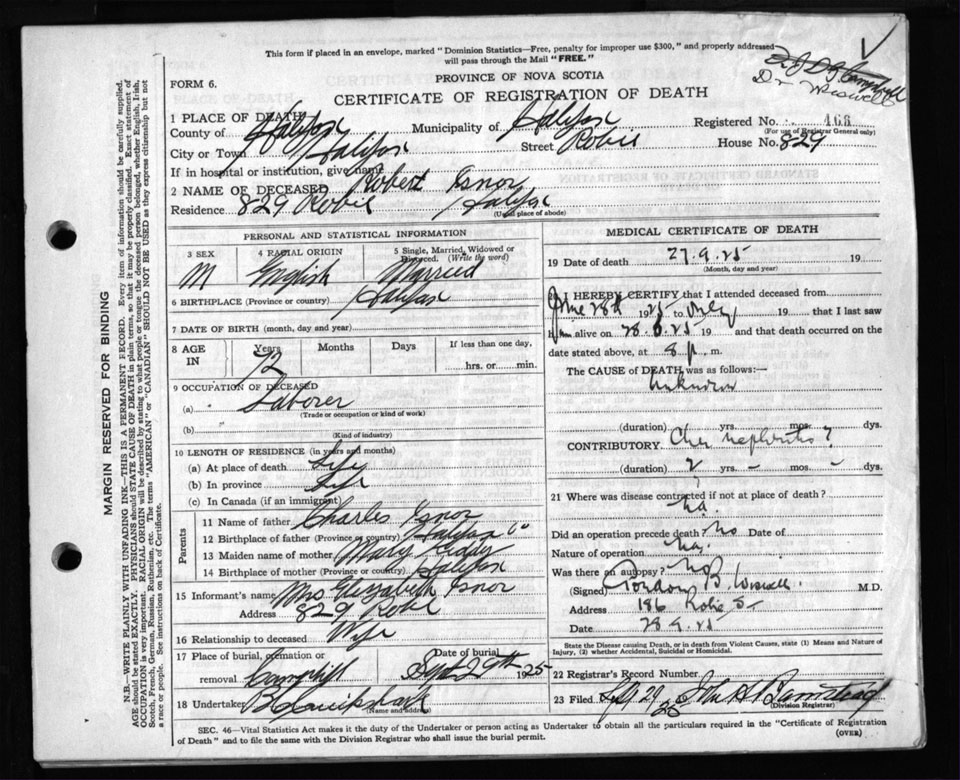 This form if placed in an envelope, marked "Dominion Statistics—Free, penalty for improper use $300," and properly addressed
will pass through the Mail "FREE."
FORM 6.
PROVINCE OF NOVA SCOTIA
CERTIFICATE OF REGISTRATION OF DEATH
Dr Wiswell
1 PLACE OF DEATH
County of Halifax Municipality of Halifax Registered No. 466
(For use of Registrar General only)
City or Town Halifax Street Robie House No. 829
If in hospital or institution, give name
2 NAME OF DECEASED Robert Isnor
Residence 829 Robie Halifax
(Usual place of abode)
PERSONAL AND STATISTICAL INFORMATION
3 SEX M
4 RACIAL ORIGIN English
5 Single, Married, Widowed or Divorced. (Write the word) Married
6 BIRTHPLACE (Province or country) Halifax
7 DATE OF BIRTH (month, day and year)
8 AGE IN Years 72 Months Days If less than one day, hrs. or min.
9 OCCUPATION OF DECEASED
(a) Laborer
(Trade or occupation or kind of work)
(b)
(Kind of industry)
10 LENGTH OF RESIDENCE (in years and months)
(a) At place of death Life
(b) In province Life
(c) In Canada (if an immigrant)
Parents
11 Name of father Charles Isnor
12 Birthplace of father (Province or country) Halifax Co
13 Maiden name of mother Mary
14 Birthplace of mother (Province or country) Halifax
15 Informant's name Mrs Elizabeth Isnor
Address 829 Robie
16 Relationship to deceased Wife
17 Place of burial, cremation or removal Camp Hill Date of burial Sept 29th 1925
18 Undertaker Cruikshank
(Name and address)
MEDICAL CERTIFICATE OF DEATH
19 Date of death 27.9.25 19
(Month, day and year)
20 I HEREBY CERTIFY that I attended deceased from
June 28th 1925 to only 19 that I last saw
him alive on 28.6.25 19 and that death occurred on the
date stated above, at 8 p. m.
The CAUSE of DEATH was as follows:—
Unknown
(duration) yrs. mos. dys.
CONTRIBUTORY Chr nephritis?
(duration) 2 yrs. – mos. – dys.
21 Where was disease contracted if not at place of death?
na.
Did an operation precede death? No Date of
Nature of operation na.
Was there an autopsy? No
(Signed) Gordon B. Wiswell M.D.
Address 186 Robie St
Date 28.9.25
State the Disease causing Death, or in death from Violent Causes, state (1) Means and Nature of
Injury, (2) whether Accidental, Suicidal or Homicidal.
22 Registrar's Record Number
23 Filed 29 25 John A
(Division Registrar)
SEC. 46—Vital Statistics Act makes it the duty of the Undertaker or person acting as Undertaker to obtain all the particulars required in the "Certificate of Registration
of Death" and to file the same with the Division Registrar who shall issue the burial permit.
(OVER)
MARGIN RESERVED FOR BINDING
N.B.—WRITE PLAINLY WITH UNFADING INK—THIS IS A PERMANENT RECORD. Every item of information should be carefully supplied.
AGE should be stated EXACTLY. PHYSICIANS should STATE CAUSE OF DEATH in plain terms, so that it may be properly classified. Exact statement of
OCCUPATION is very important. RACIAL ORIGIN will be described by stating to what people or tongue the deceased person belonged, whether English, Irish,
Scotch, French, German, Russian, Ruthenian, etc. The terms "AMERICAN" or "CANADIAN" SHOULD NOT BE USED as they express citizenship but not
a race or people. See instructions on back of Certificate.